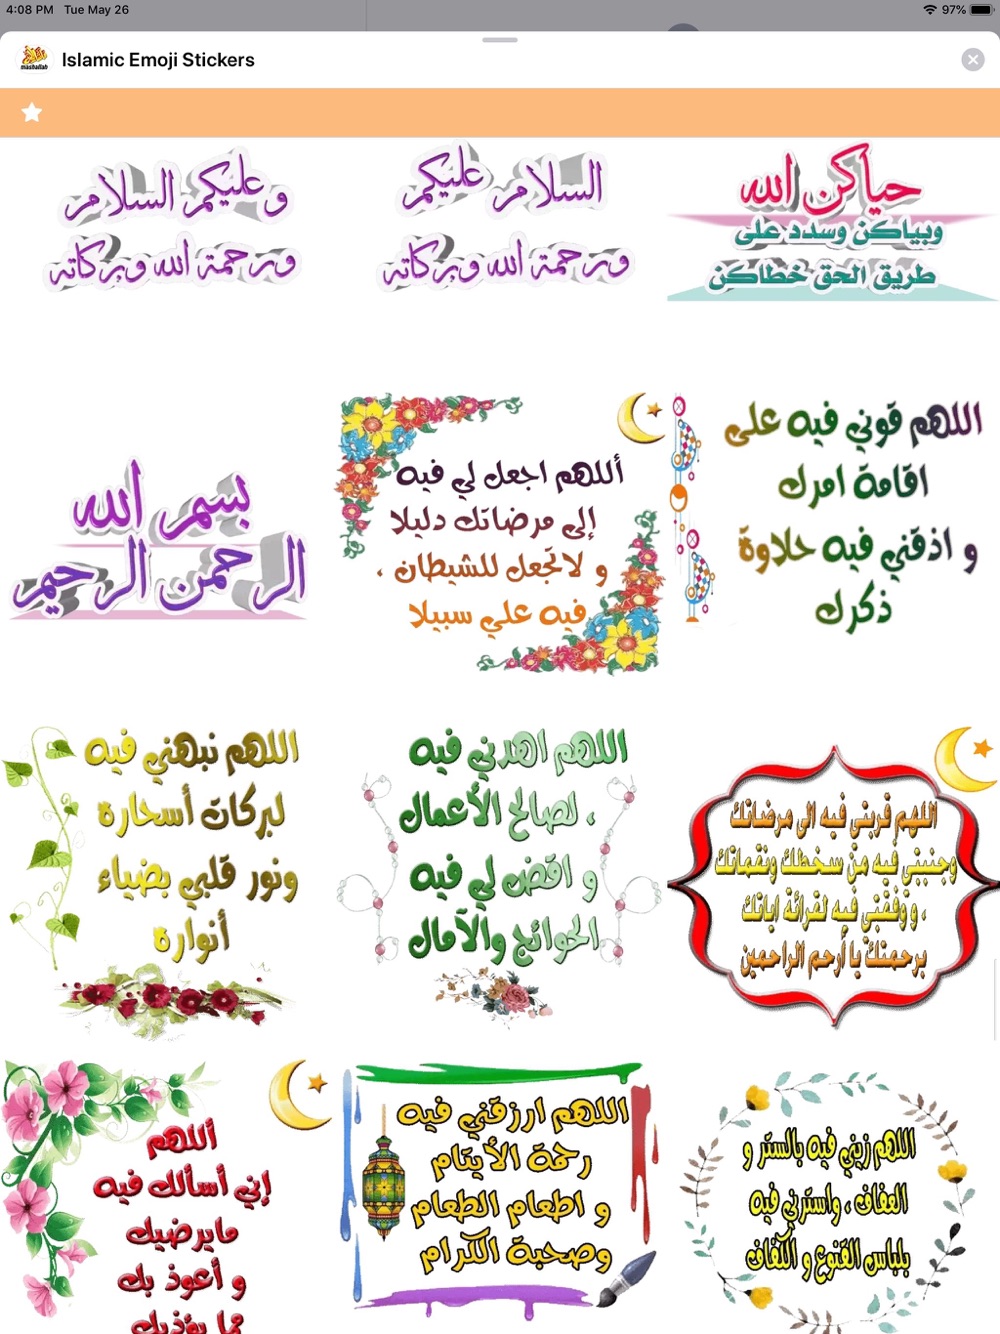 4:08 PM Tue May 26
97%
mashallah
Islamic Emoji Stickers
و عليكم السلام
ورحمة الله وبركاته
السلام عليكم
ورحمة الله وبركاته
حياكن الله
وبياكن وسدد على
طريق الحق خطاكن
بسم الله
الرحمن الرحيم
أللهم اجعل لي فيه
إلى مرضاتك دليلا
و لاتجعل للشيطان ،
فيه علي سبيلا
اللهم قوني فيه على
اقامة امرك
و اذقني فيه حلاوة
ذكرك
اللهم نبهني فيه
لبركات أسحاره
ونور قلبي بضياء
أنواره
اللهم اهدني فيه
لصالح الأعمال ،
و اقض لي فيه
الحوائج والآمال
اللهم قربني فيه الى مرضاتك
وجنبني فيه من سخطك ونقماتك
، و وفقني فيه لقرائة اياتك
برحمتك يا أرحم الراحمين
أللهم
إني أسألك فيه
مايرضيك
و أعوذ بك
مما يؤذيك
اللهم ارزقني فيه
رحمة الأيتام
و اطعام الطعام
وصحبة الكرام
اللهم زيني فيه بالستر و
العفاف ، واسترني فيه
بلباس القنوع و الكفاف